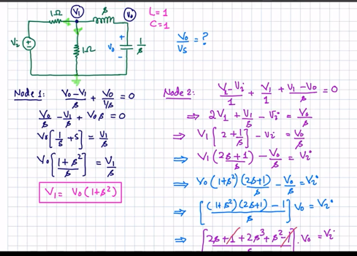 1Ω V₁ s V₀
L=1
C=1
Vᵢ 1Ω V₀ 1/s
V₀/Vs = ?
Node 1:
(V₀-V₁)/s + V₀/(1/s) = 0
V₀/s - V₁/s + V₀s = 0
V₀[1/s + s] = V₁/s
V₀[(1+s²)/s] = V₁/s
V₁ = V₀(1+s²)
Node 2:
(V₁-Vᵢ)/1 + V₁/1 + (V₁-V₀)/s = 0
⇒ 2V₁ + V₁/s - Vᵢ = V₀/s
⇒ V₁[2+1/s] - Vᵢ = V₀/s
⇒ V₁(2s+1)/s - V₀/s = Vᵢ
⇒ V₀(1+s²)(2s+1)/s - V₀/s = Vᵢ
⇒ [((1+s²)(2s+1)-1)/s] V₀ = Vᵢ
⇒ [2s+1+2s³+s²-1] V₀ = Vᵢ